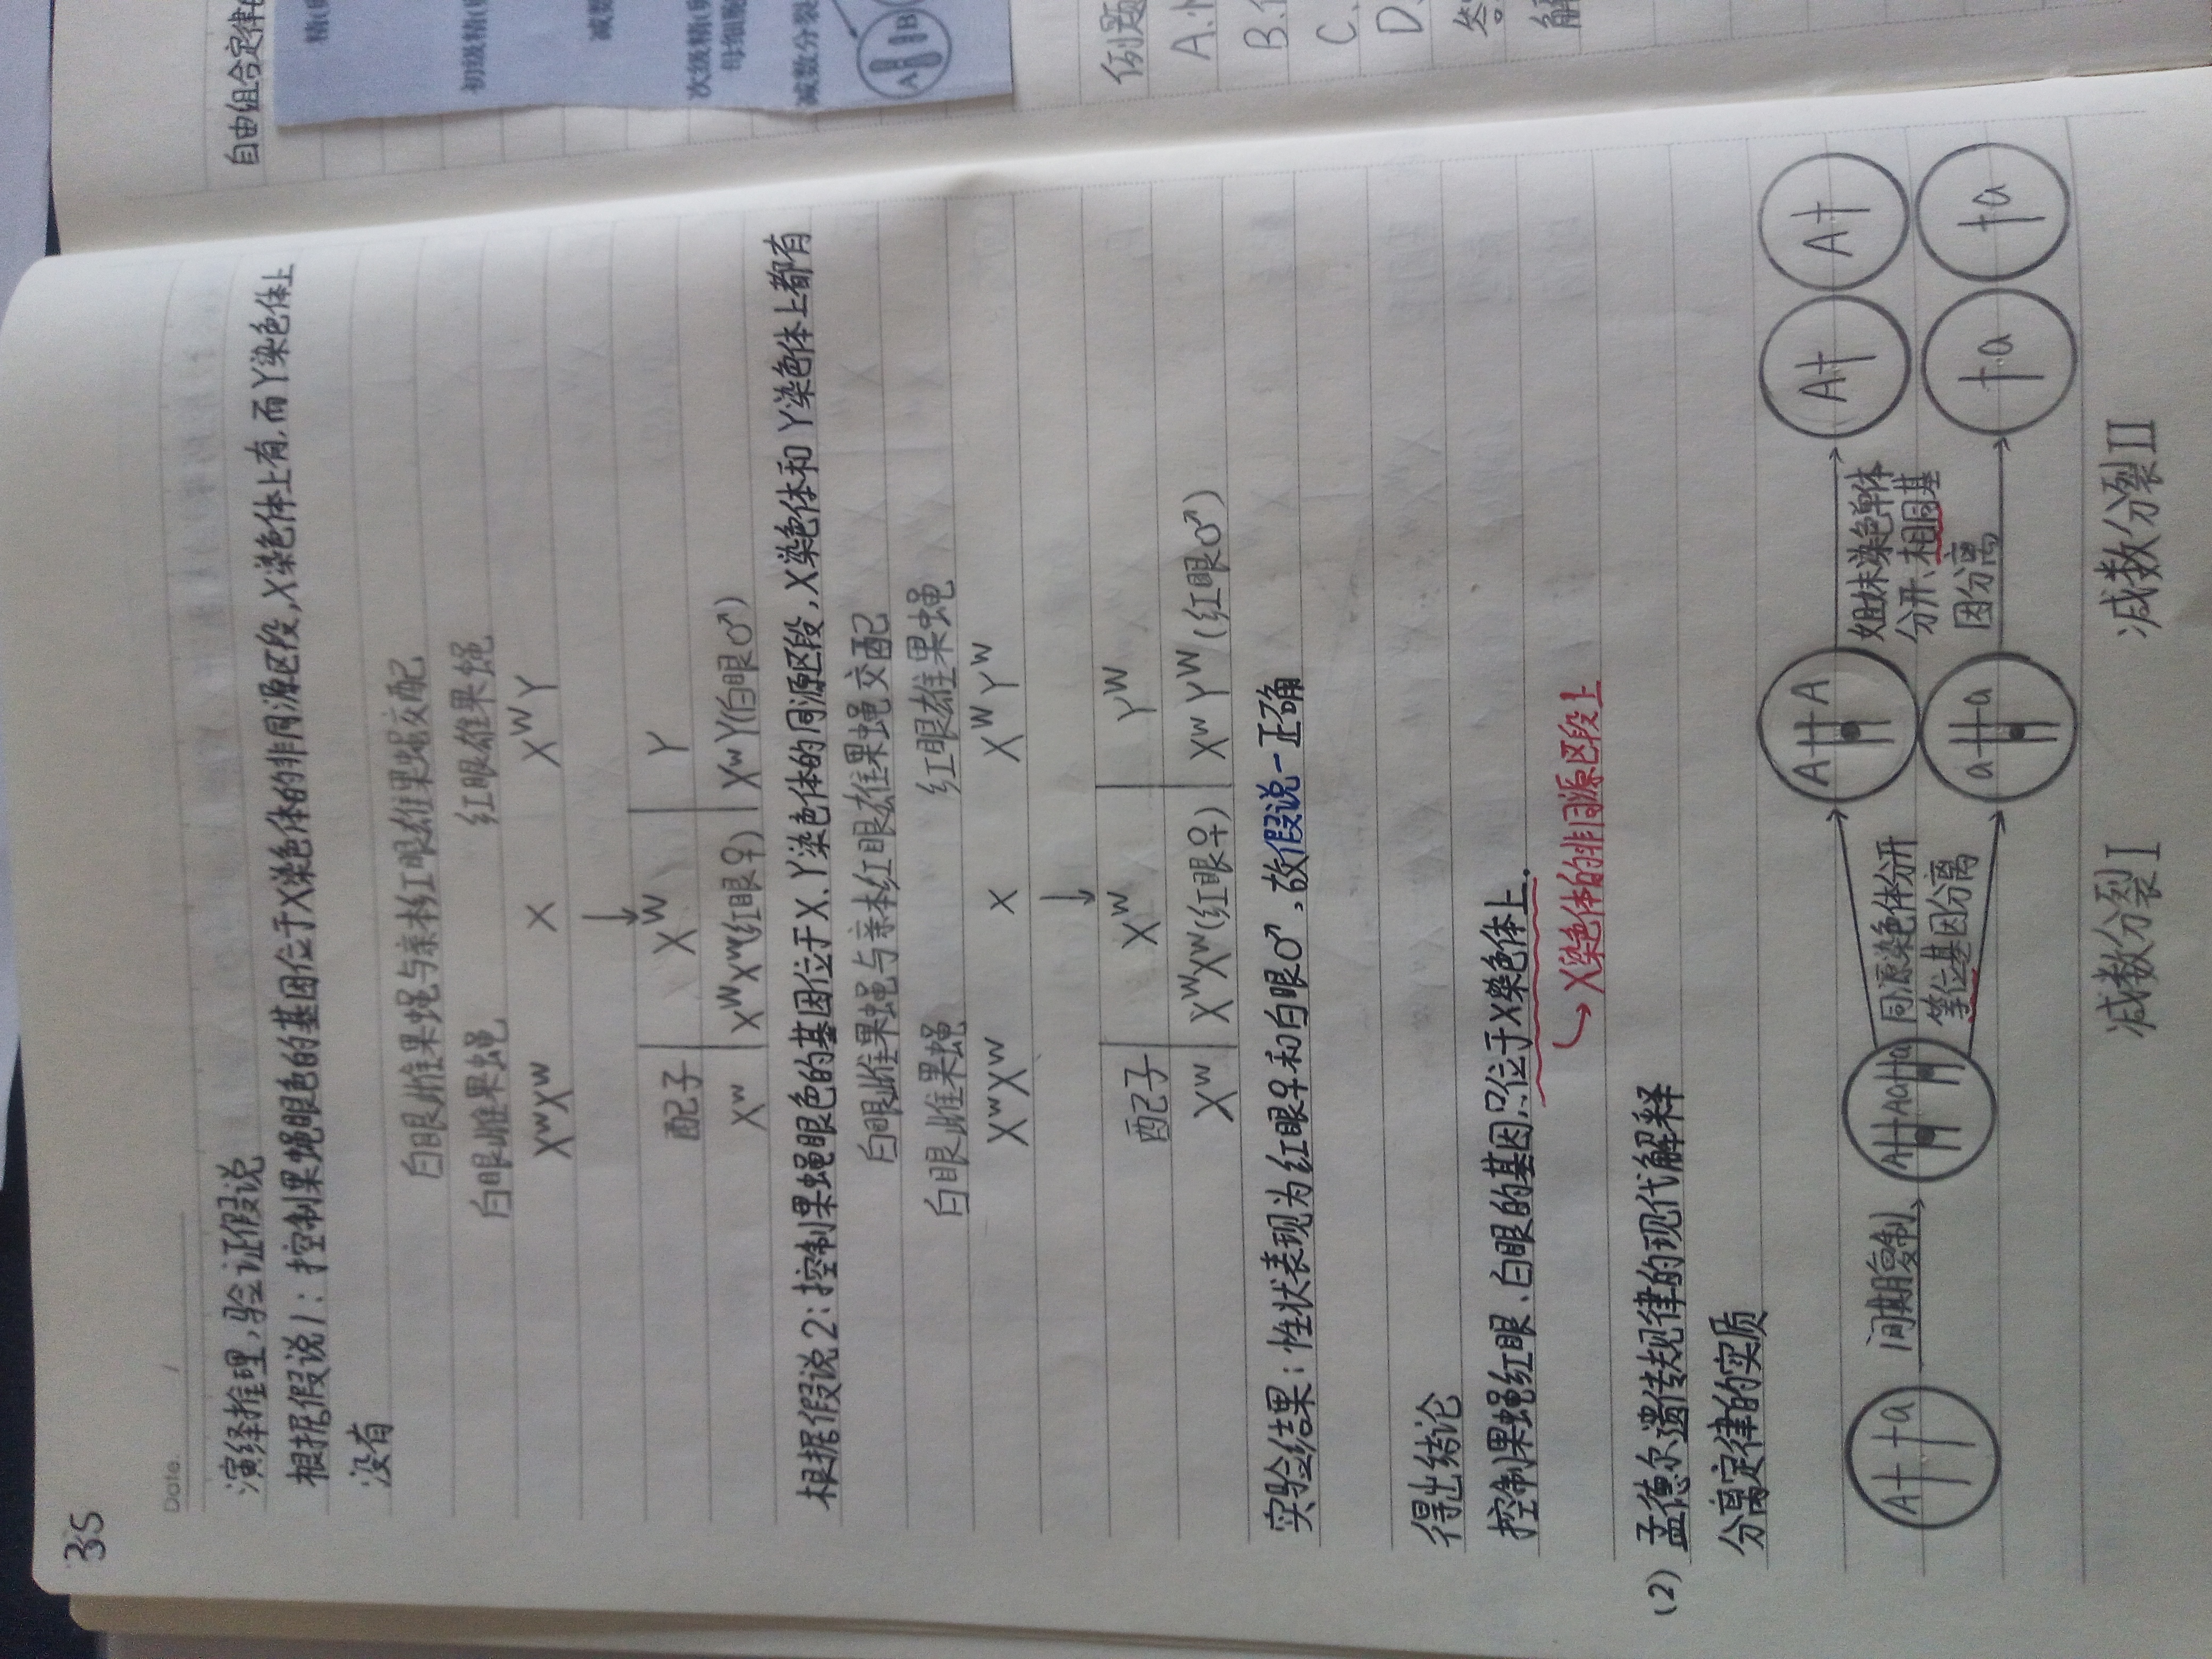 35
Date.
演绎推理,验证假说
根据假说1:控制果蝇眼色的基因位于X染色体的非同源区段,X染色体上有,而Y染色体上
没有
白眼雌果蝇与亲本红眼雄果蝇交配
白眼雌果蝇 红眼雄果蝇
XʷXʷ × XᵂY
↓
配子 Xᵂ Y
Xʷ XᵂXʷ(红眼♀) XʷY(白眼♂)
根据假说2:控制果蝇眼色的基因位于X、Y染色体的同源区段,X染色体和Y染色体上都有
白眼雌果蝇与亲本红眼雄果蝇交配
白眼雌果蝇 红眼雄果蝇
XʷXʷ × XᵂYᵂ
↓
配子 Xᵂ Yᵂ
Xʷ XᵂXʷ(红眼♀) XʷYᵂ(红眼♂)
实验结果:性状表现为红眼♀和白眼♂,故假说一正确
得出结论
控制果蝇红眼、白眼的基因只位于X染色体上.
→X染色体的非同源区段上
(2)孟德尔遗传规律的现代解释
分离定律的实质
A a
间期复制
A A a a
同源染色体分开
等位基因分离
A A
a a
姐妹染色单体
分开、相同基
因分离
A A
a a
减数分裂I 减数分裂II
自由组合定律
初级精
次级精
母细胞
减数分裂
A B
例题
A.
B.
C.
D.